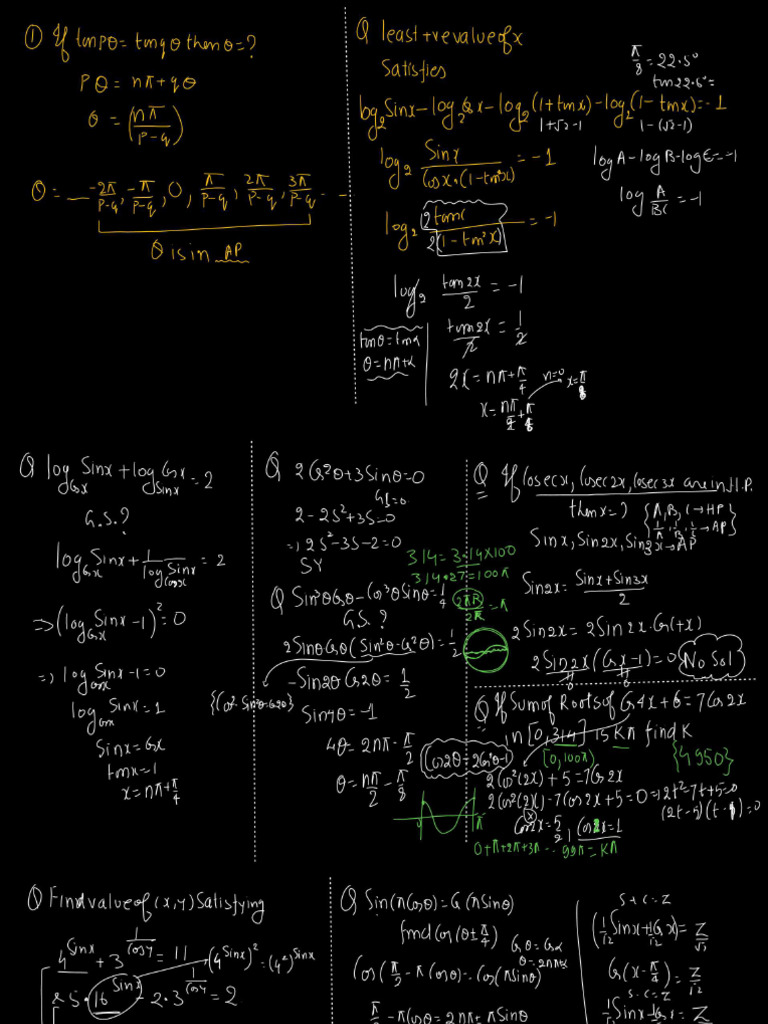 ① If tanpθ = tanqθ then θ = ?
pθ = nπ + qθ
θ = (nπ/p-q)
θ = __ -2π/p-q, -π/p-q, 0, π/p-q, 2π/p-q, 3π/p-q - - -
θ is in AP
Q least +ve value of x
Satisfies
log₂Sinx - log₂Cosx - log₂(1+tanx) - log₂(1-tanx) = -1
1+√2-1
1-(√2-1)
π/8 = 22.5°
tan22.5° =
log₂ Sinx/Cosx·(1-tan²x) = -1
logA - logB - logC = -1
log A/BC = -1
log₂ 2tanx/2(1-tan²x) = -1
log₂ tan2x/2 = -1
tan2x/2 = 1/2
tanθ = tanα
θ = nπ+α
2x = nπ + π/4
n=0 x = π/8
x = nπ/2 + π/8
Q log_Cosx Sinx + log_Sinx Cosx = 2
G.S.?
log_Cosx Sinx + 1/log_Cosx Sinx = 2
⇒ (log_Cosx Sinx - 1)² = 0
⇒ log_Cosx Sinx - 1 = 0
log_Cosx Sinx = 1
Sinx = Cosx
tanx = 1
x = nπ + π/4
Q 2Cos²θ + 3Sinθ = 0
G.S = 0
2 - 2S² + 3S = 0
⇒ 2S² - 3S - 2 = 0
SY
Q Sin³θCosθ - Cos³θSinθ = 1/4
G.S.?
2SinθCosθ(Sin²θ - Cos²θ) = 1/2
-Sin2θ Cos2θ = 1/2
{Cos² - Sin²θ = Cos2θ}
Sin4θ = -1
4θ = 2nπ - π/2
θ = nπ/2 - π/8
Q If Cosecx, Cosec2x, Cosec3x are in H.P.
then x = ?
{A, B, C → HP
1/A, 1/B, 1/C → AP}
Sinx, Sin2x, Sin3x → AP
Sin2x = Sinx + Sin3x/2
2Sin2x = 2Sin2x·Cos(+x)
2Sin2x(Cosx - 1) = 0
No Sol
314 = 3.14×100
314.27 = 100π
2πR/2R = π
Q If Sum of Roots of Cos4x + 6 = 7Cos2x
in [0, 314] is Kπ find K
[0, 100π]
{4950}
Cos2θ = 2Cos²θ-1
2Cos²(2x) + 5 = 7Cos2x
2Cos²(2x) - 7Cos2x + 5 = 0 ⇒ 2t² - 7t + 5 = 0
(2t - 5)(t - 1) = 0
Cos2x = 5/2, Cos2x = 1
0 π
0 + π + 2π + 3π - - - 99π = Kπ
Q Find value of (x, y) Satisfying
4^Sinx + 3^1/Cosy = 11
(4^Sinx)² = (4²)^Sinx
25·16^Sinx - 2·3^1/Cosy = 2
Q Sin(πCosθ) = Cos(πSinθ)
find Cos(θ ± π/4)
Cosθ = Cosα
θ = 2nπ±α
Cos(π/2 - πCosθ) = Cos(πSinθ)
π/2 - πCosθ = 2nπ ± πSinθ
S + C = Z
(1/√2 Sinx + 1/√2 Cosx) = Z/√2
Cos(x - π/4) = Z/√2
S - C = Z